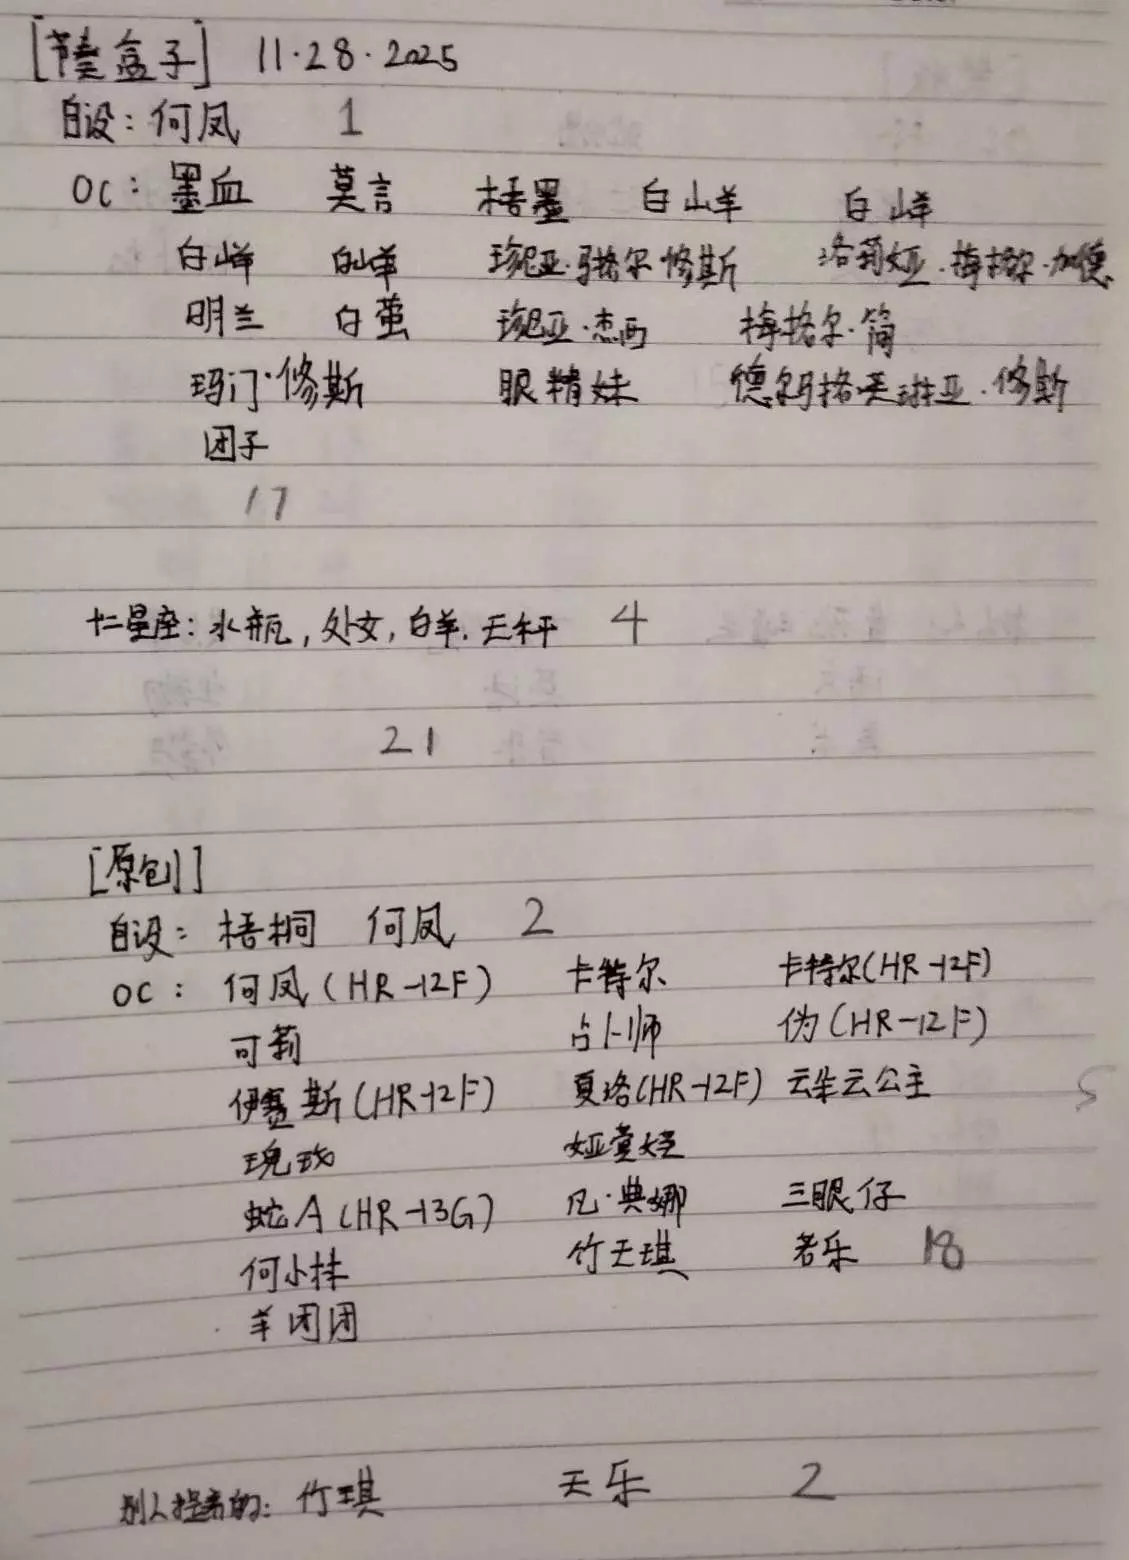 [节奏盒子] 11·28·2025
自设：何凤 1
OC：墨血 莫言 梧墨 白山羊 白山羊
白山羊 白山羊 斯 洛莉娅·梅格尔·加德
明兰 白茧 ·杰西 梅格尔·简
玛门·修斯 眼精妹 德尔玛格 琳亚·修斯
团子
17
十二星座：水瓶，处女，白羊，天秤 4
21
[原创]
自设：梧桐 何凤 2
OC：何凤（HR-12F） 卡特尔 卡特尔（HR-12F）
可莉 占卜师 伪（HR-12F）
伊赛斯（HR-12F） 夏洛（HR-12F） 云朵云公主
玫
蛇A（HR-13G） 凡·典娜 三眼仔
何小林 竹天琪 若乐 18
羊团团
别人 的：竹琪 天乐 2